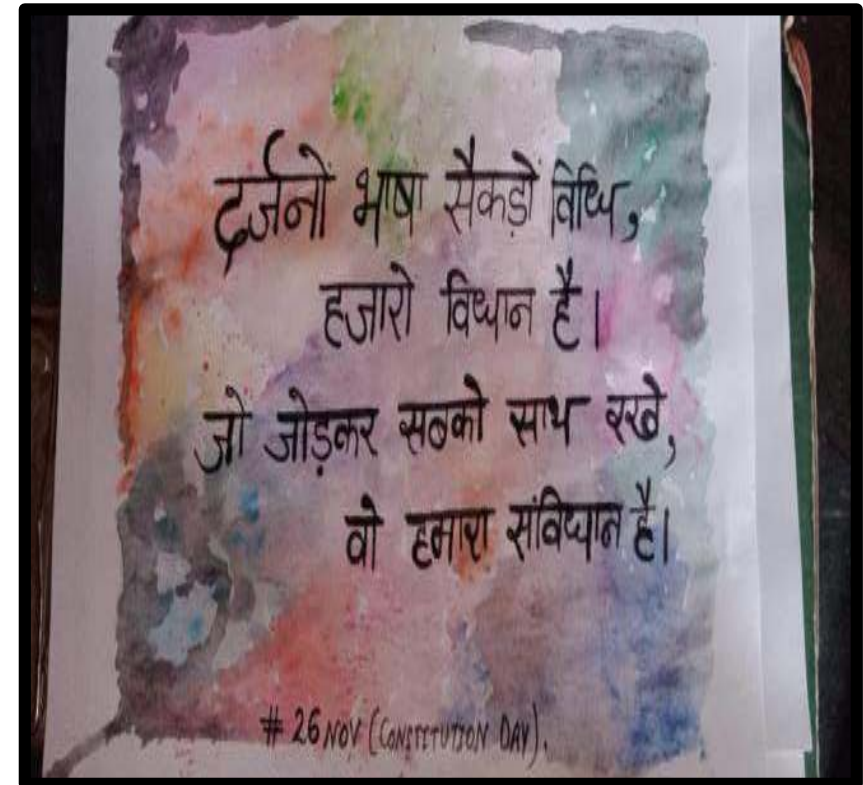 दर्जनों भाषा सैकड़ों विधि,
हजारो विधान है।
जो जोड़कर सबको साथ रखे,
वो हमारा संविधान है।
# 26 NOV (CONSTITUTION DAY).